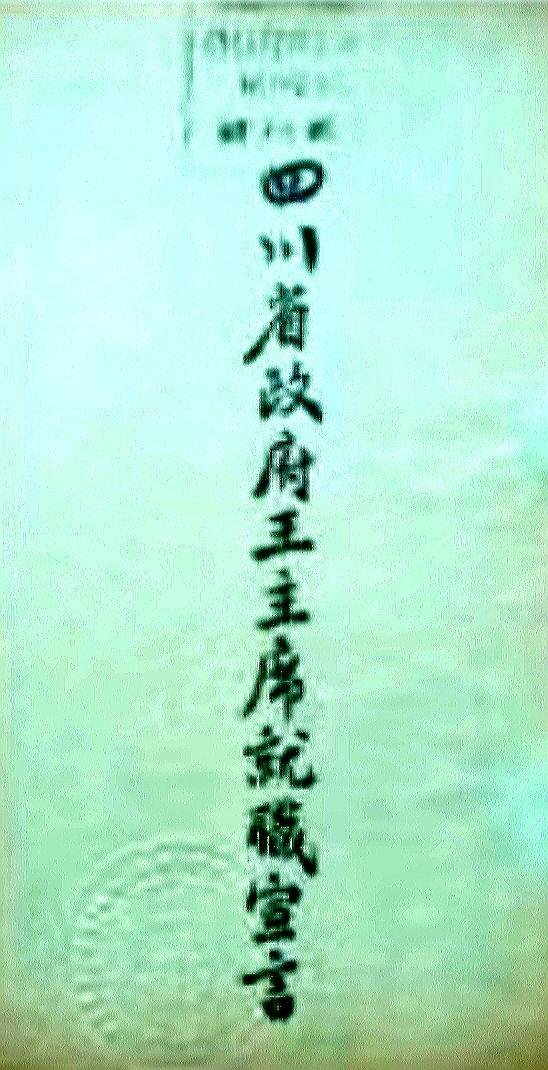 四川省政府王主席就職宣言